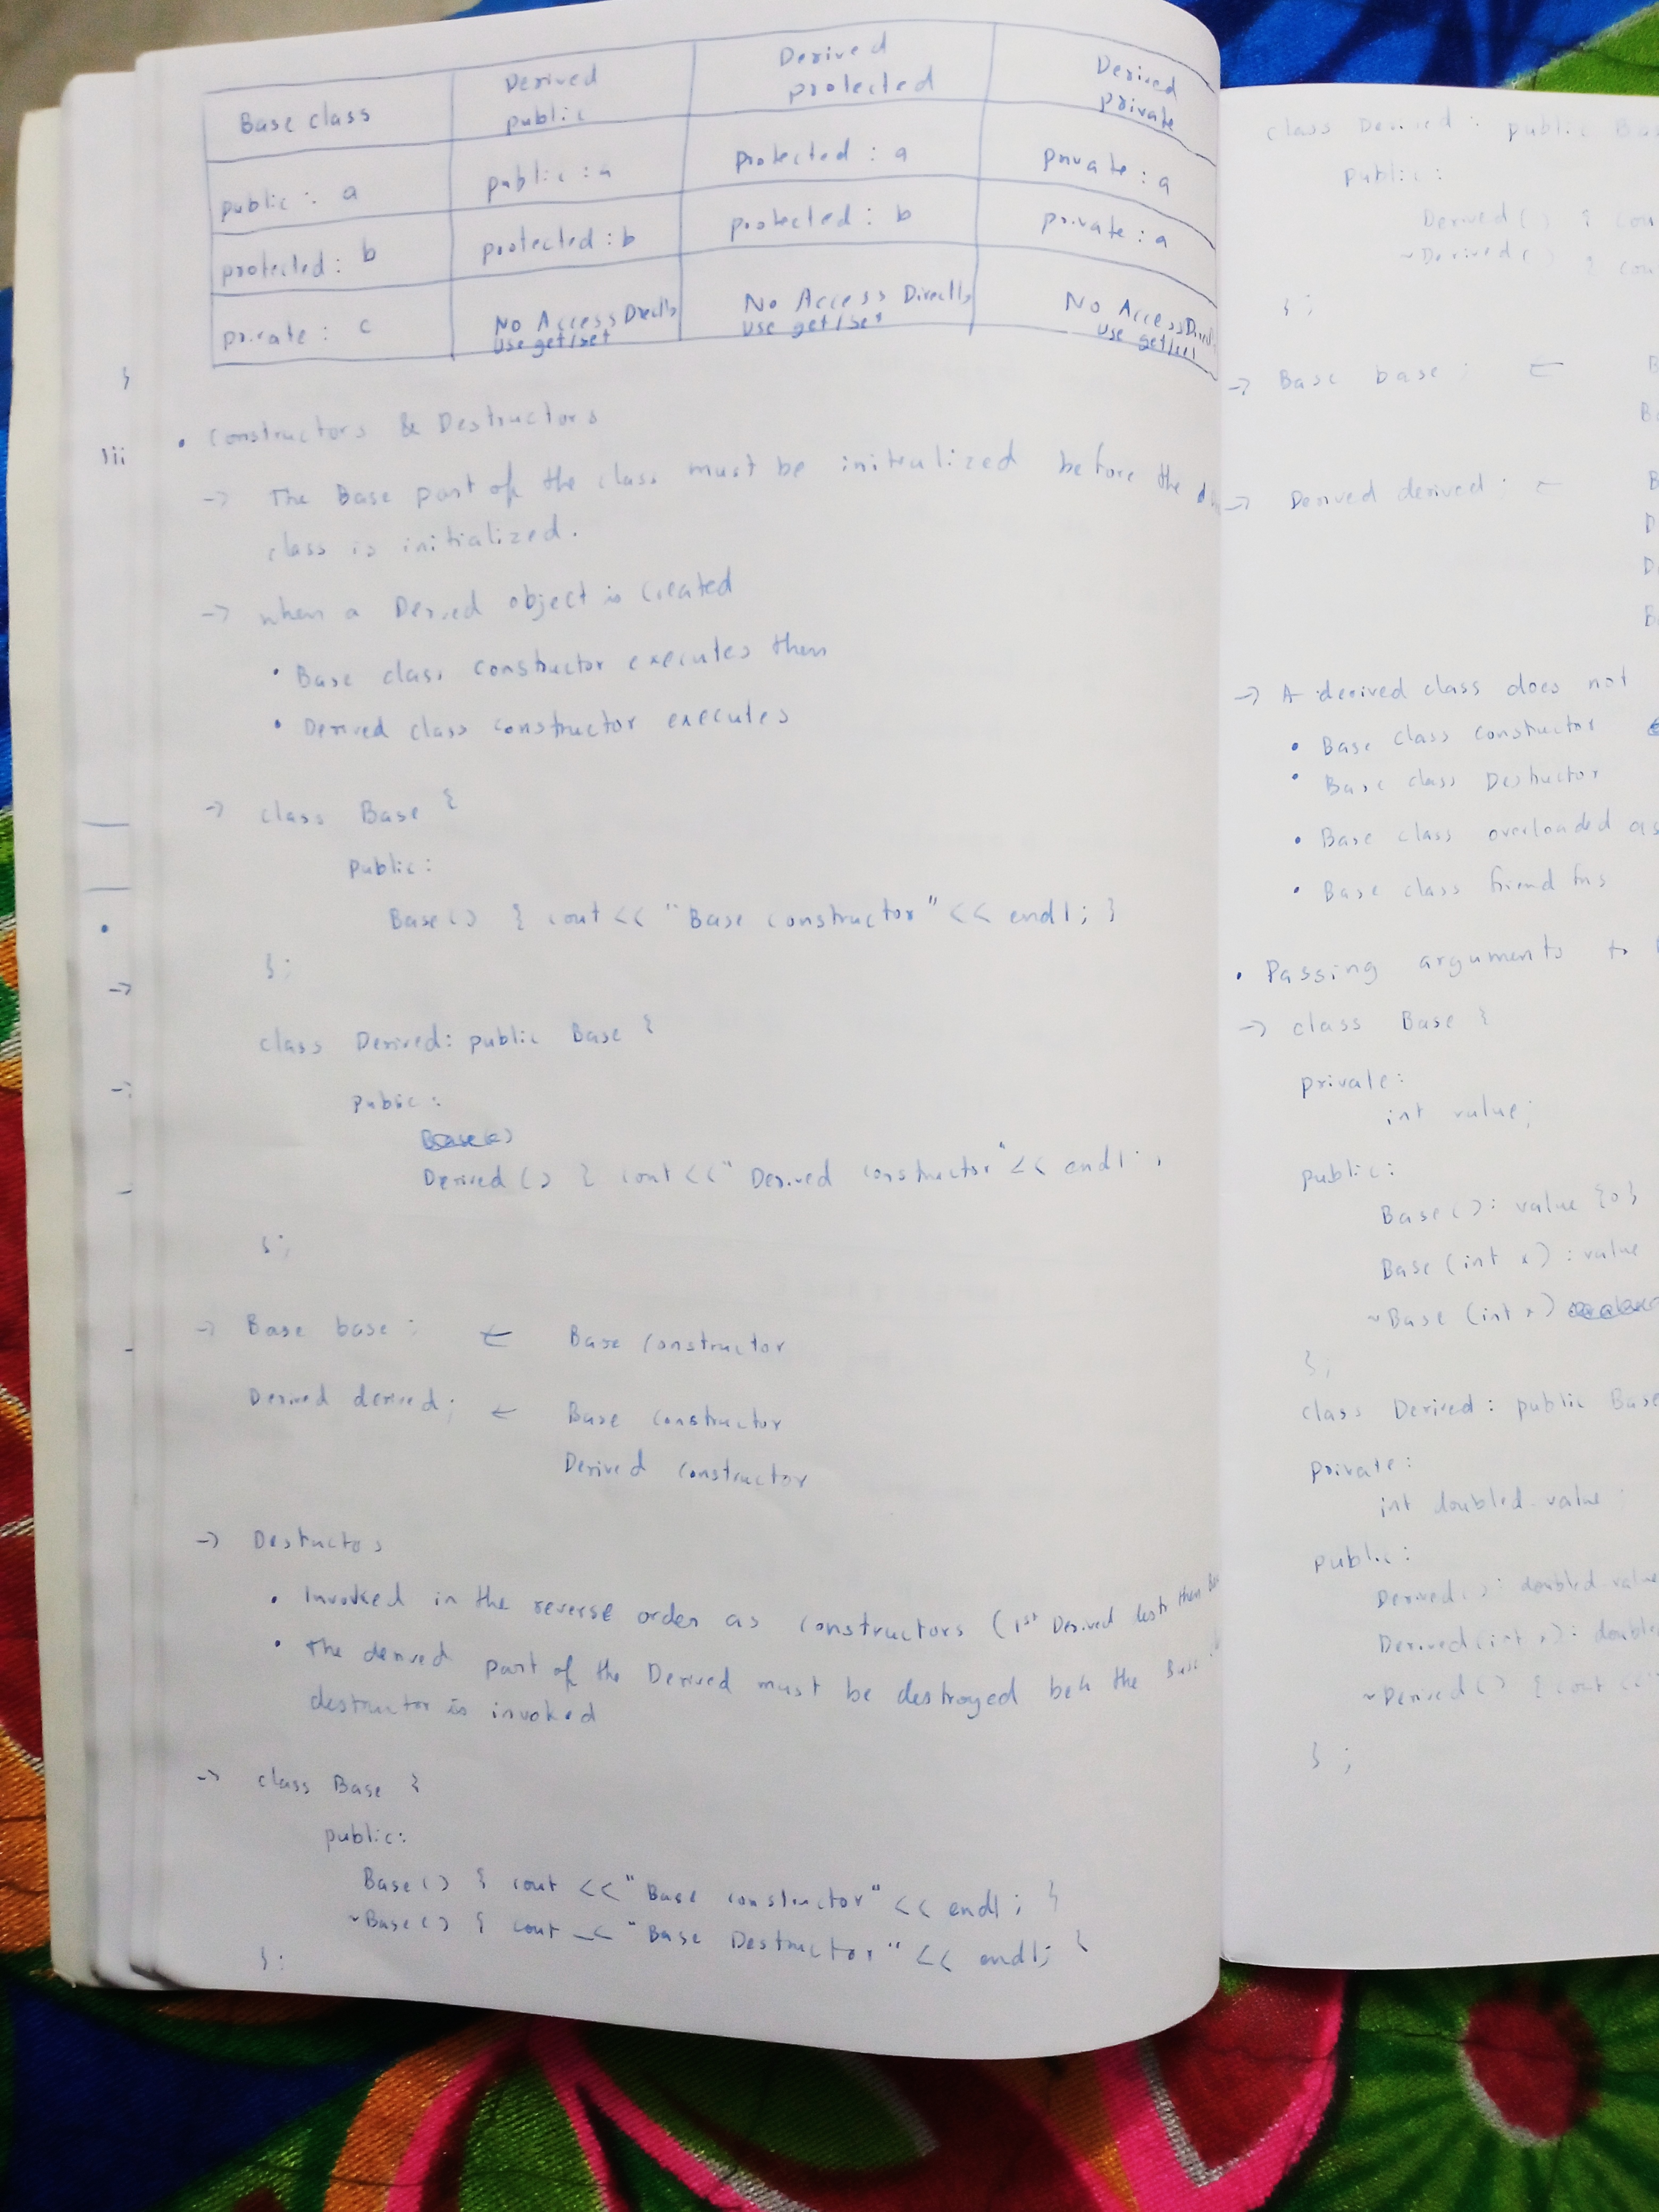 Base class Derived public Derived protected Derived private
public : a public : a protected : a private : a
protected : b protected : b protected : b private : a
private : c No Access Directly use get/set No Access Directly use get/set No Access use get/set
• Constructors & Destructors
-> The Base part of the class must be initialized before the
class is initialized.
-> when a Derived object is created
• Base class constructor executes then
• Derived class constructor executes
-> class Base {
public:
Base() { cout << "Base constructor" << endl; }
};
class Derived: public Base {
public:
Derived () { cout << "Derived constructor" << endl;
};
-> Base base; ← Base constructor
Derived derived; ← Base constructor
Derived constructor
-> Destuctos
• Invoked in the reverse order as constructors (1st Derived destr then
• The derived part of the Derived must be destroyed the Base
destructor is invoked
-> class Base {
public:
Base() { cout << "Base constructor" << endl; }
~Base() { cout << "Base Destructor" << endl; }
};
class Derived: public
public:
Derived() {
~Derived() {
};
-> Base base; ←
-> Derived derived; ←
-> A derived class does not
• Base class constructor
• Base class Destructor
• Base class overloaded
• Base class friend fns
• Passing arguments to
-> class Base {
private:
int value;
public:
Base(): value {0}
Base (int x) : value
~Base (int x)
};
class Derived: public Base
private:
int doubled_value
public:
Derived(): doubled_value
Derived(int x):
~Derived() { cout <<
};